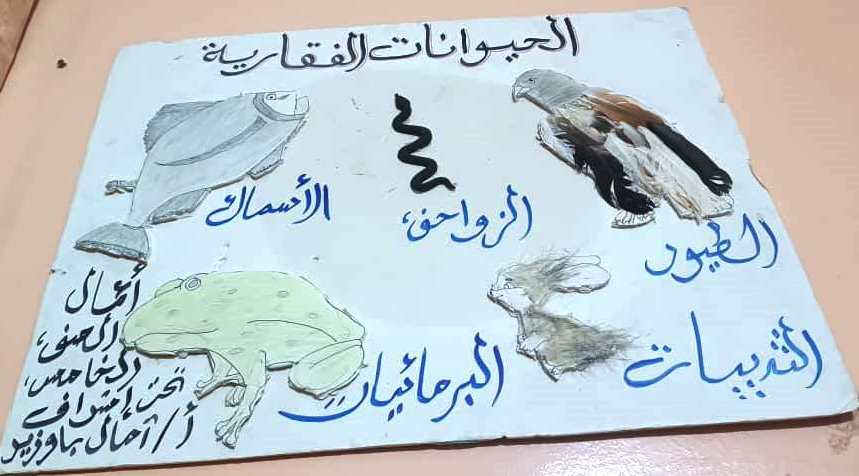 الحيوانات الفقارية
الطيور
الزواحف
الأسماك
الثدييات
البرمائيات
أعمال
الصف
الخامس
تحت إشراف
أ/آمال باوزير